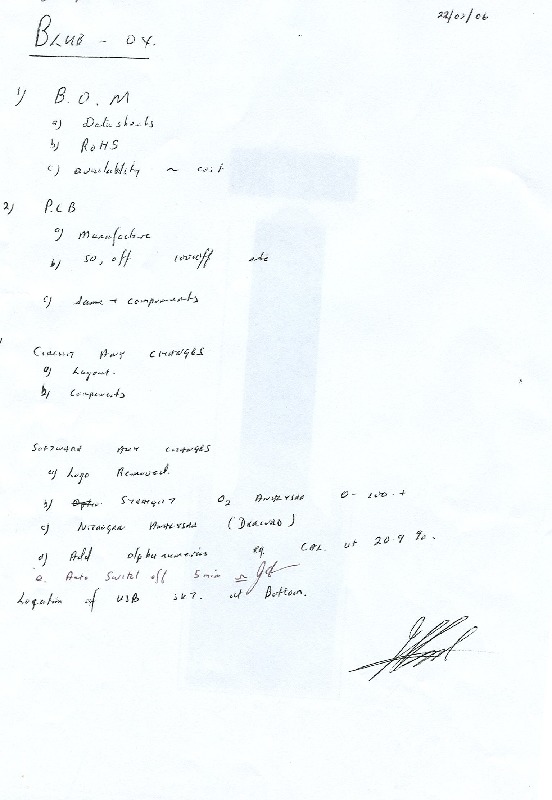 22/02/06
BLUB - 04.
1) B.O.M
a) Datasheets
b) RoHS
c) availablity ~ cost
2) P.C.B
a) Manufacture
b) 50, off 1000off etc
c) Same + components
Circuit ANY CHANGES
a) Layout.
b) Components
SOFTWARE ANY CHANGES
a) Logo Removed.
b) STRAIGHT O2 ANALYSER 0-100.
c) NITROGEN ANALYSER (DERIVED)
d) Add alphanumerics eg. CAL at 20.9 %.
e. Auto Switch off 5min
Location of USB SKT. at Bottom.